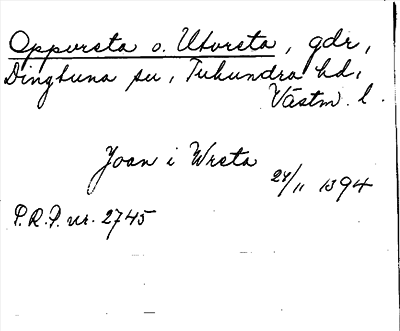 Oppvreta o. Utvreta, gdr,
Dingtuna sn, Tuhundra hd,
Västm. l.
Joan i Wreta
24/11 1394
P.R.P. nr. 2745